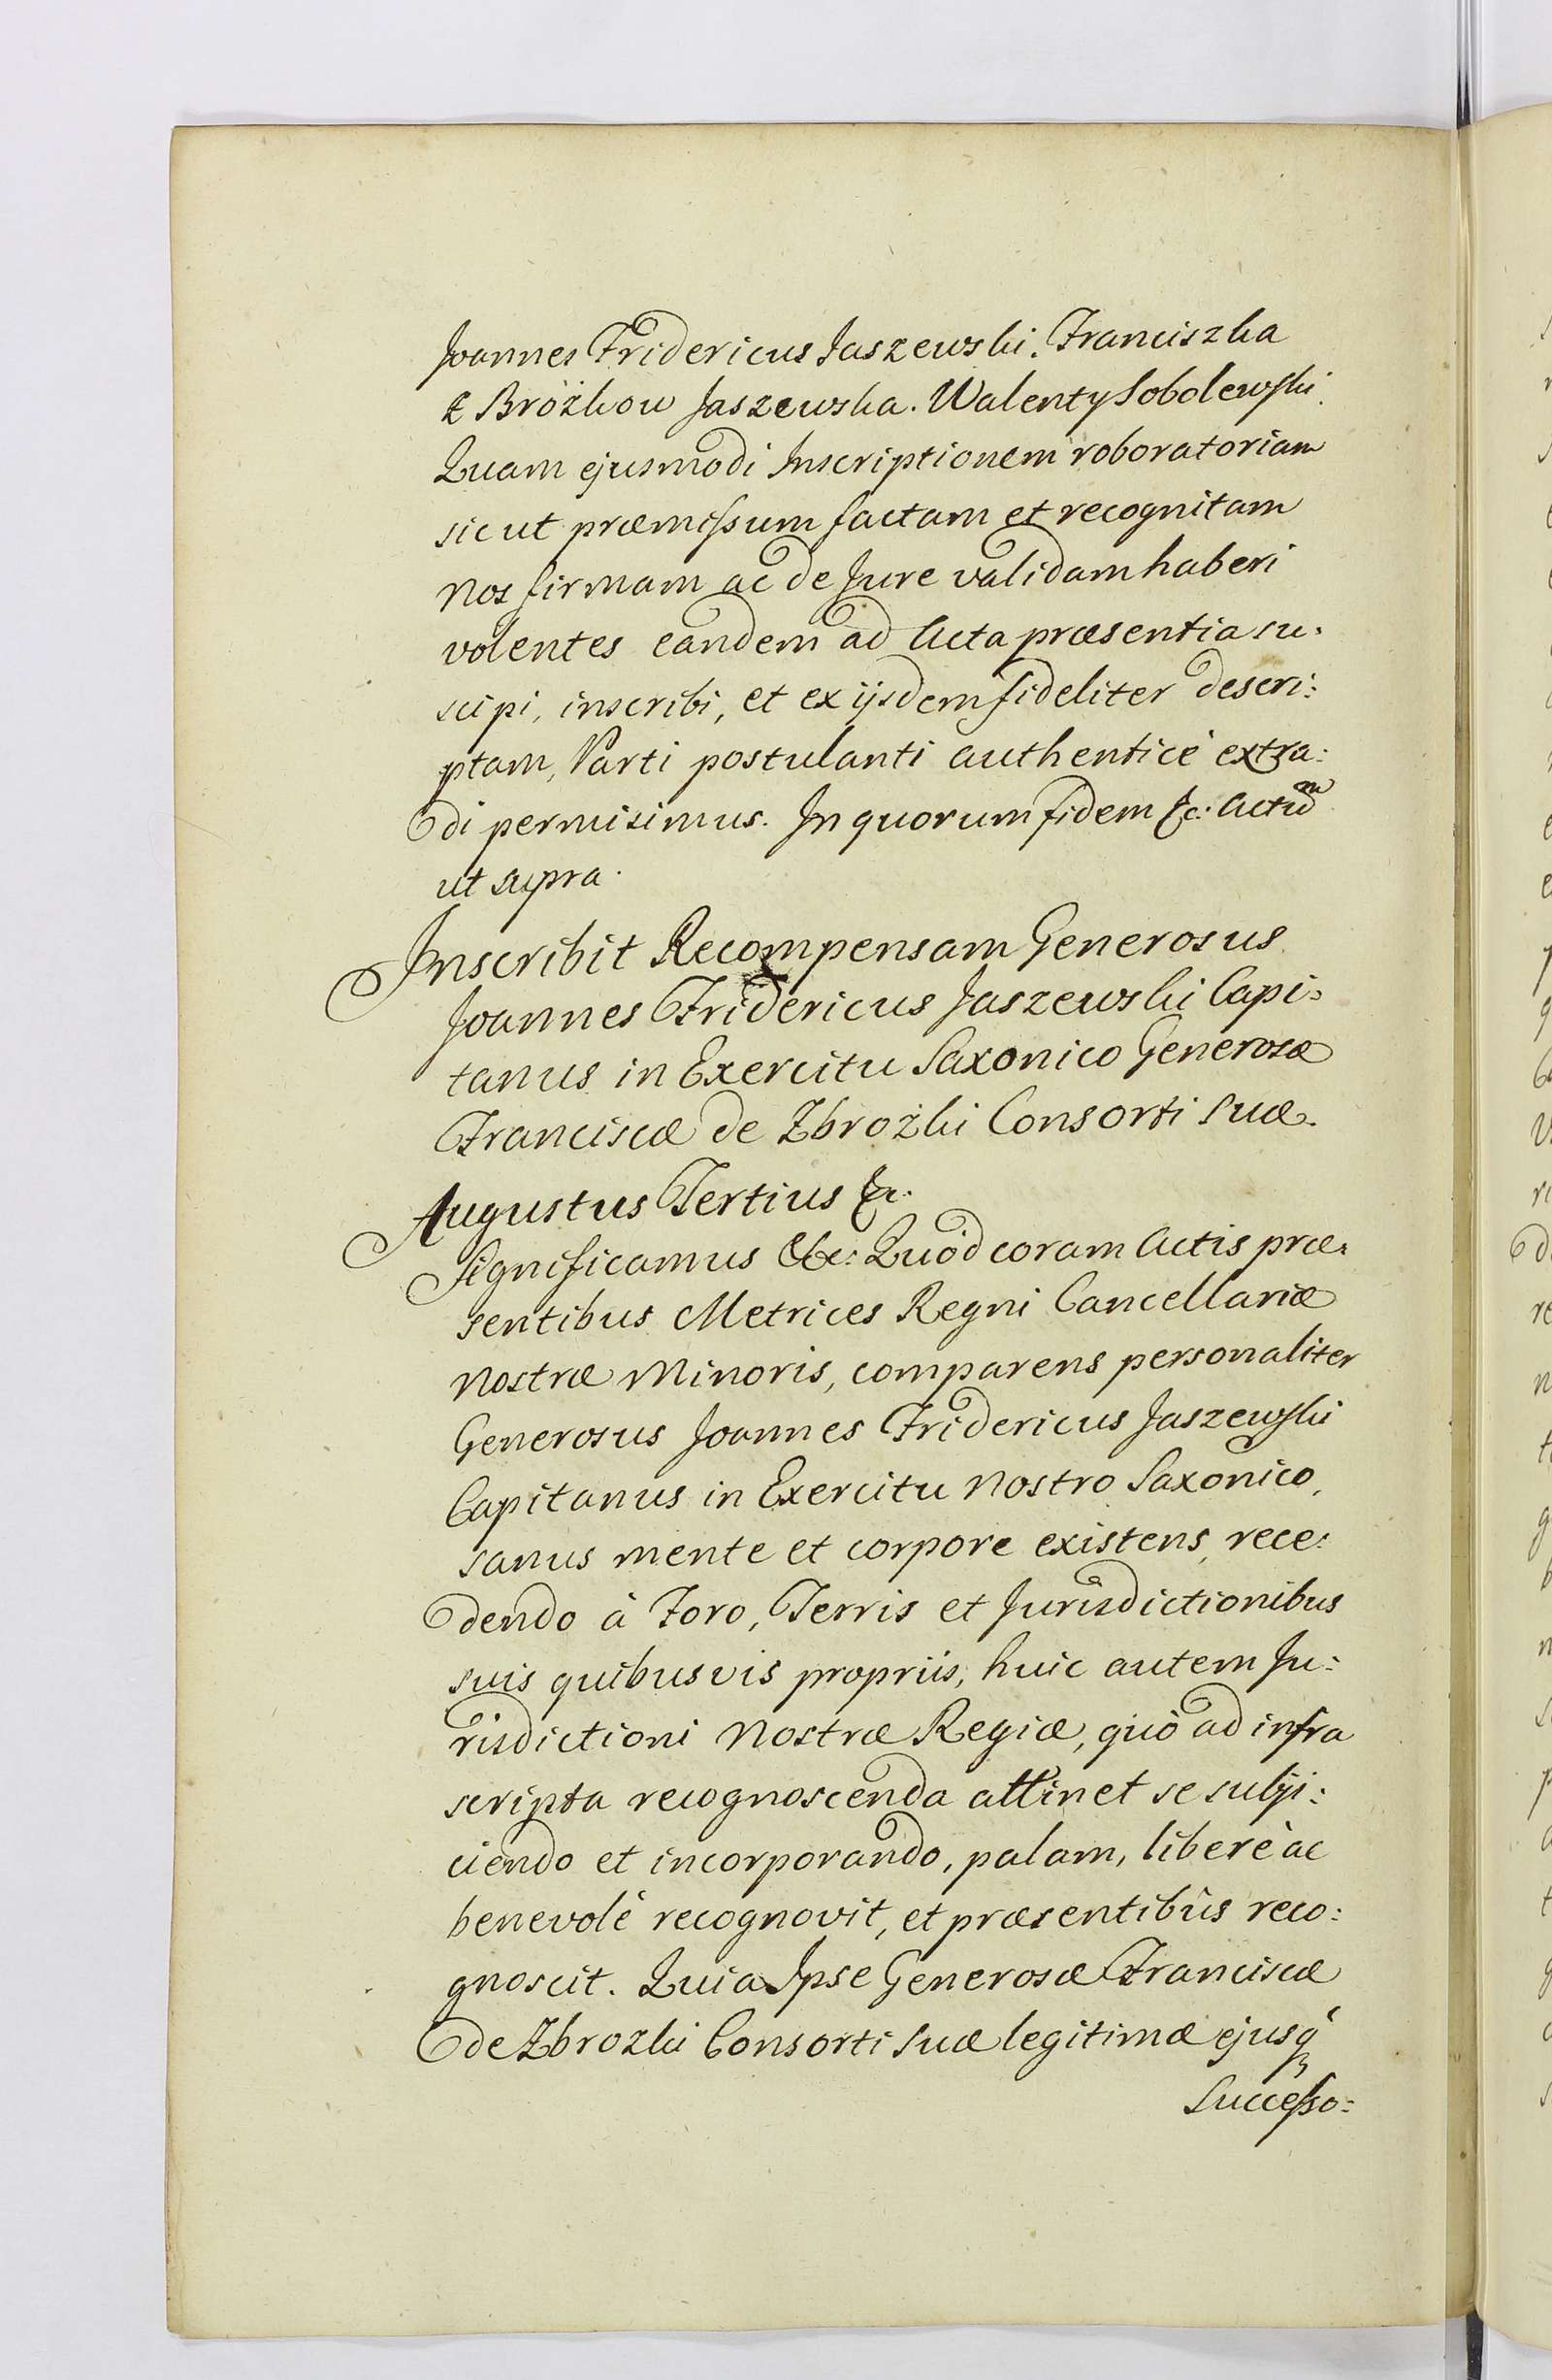 Joannes Fridericus Jaszewski. Franciszka
z Brożkow Jaszewska. Walenty Sobolewski.
Quam ejusmodi Inscriptionem roboratoriam
sic ut præmissum factam et recognitam
nos firmam ac de Jure validam haberi
volentes eandem ad Acta præsentia su:
scipi, inscribi, et ex ijsdem fideliter descri:
ptam, Parti postulanti authenticè extra:
di permisimus. In quorum fidem &c: Actũ
ut supra.
Inscribit Recompensam Generosus
Joannes Fridericus Jaszewski Capi:
tanus in Exercitu Saxonico Generosæ
Franciscæ de Zbrożki Consorti suæ.
Augustus Tertius &c.
Significamus &c: Quòd coram Actis præ:
sentibus Metrices Regni Cancellariæ
nostræ Minoris, comparens personaliter
Generosus Joannes Fridericus Jaszewski
Capitanus in Exercitu nostro Saxonico,
sanus mente et corpore existens, rece:
dendo à Foro, Terris et Jurisdictionibus
suis quibusvis propriis, huic autem Ju:
risdictioni nostræ Regiæ, quò ad infra
scripta recognoscenda attinet se subji:
ciendo et incorporando, palam, liberè ac
benevolè recognovit, et præsentibus reco:
gnoscit. Quia Ipse Generosæ Franciscæ
de Zbrozki Consorti suæ legitimæ ejusq́
Successo: